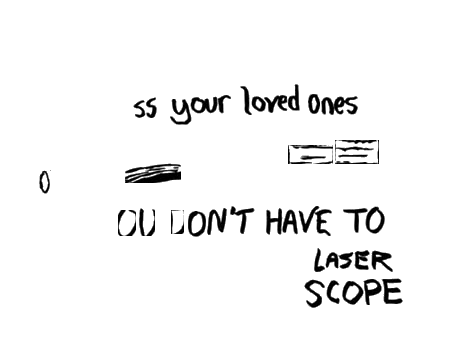 ss your loved ones
OU DON'T HAVE TO
LASER
SCOPE